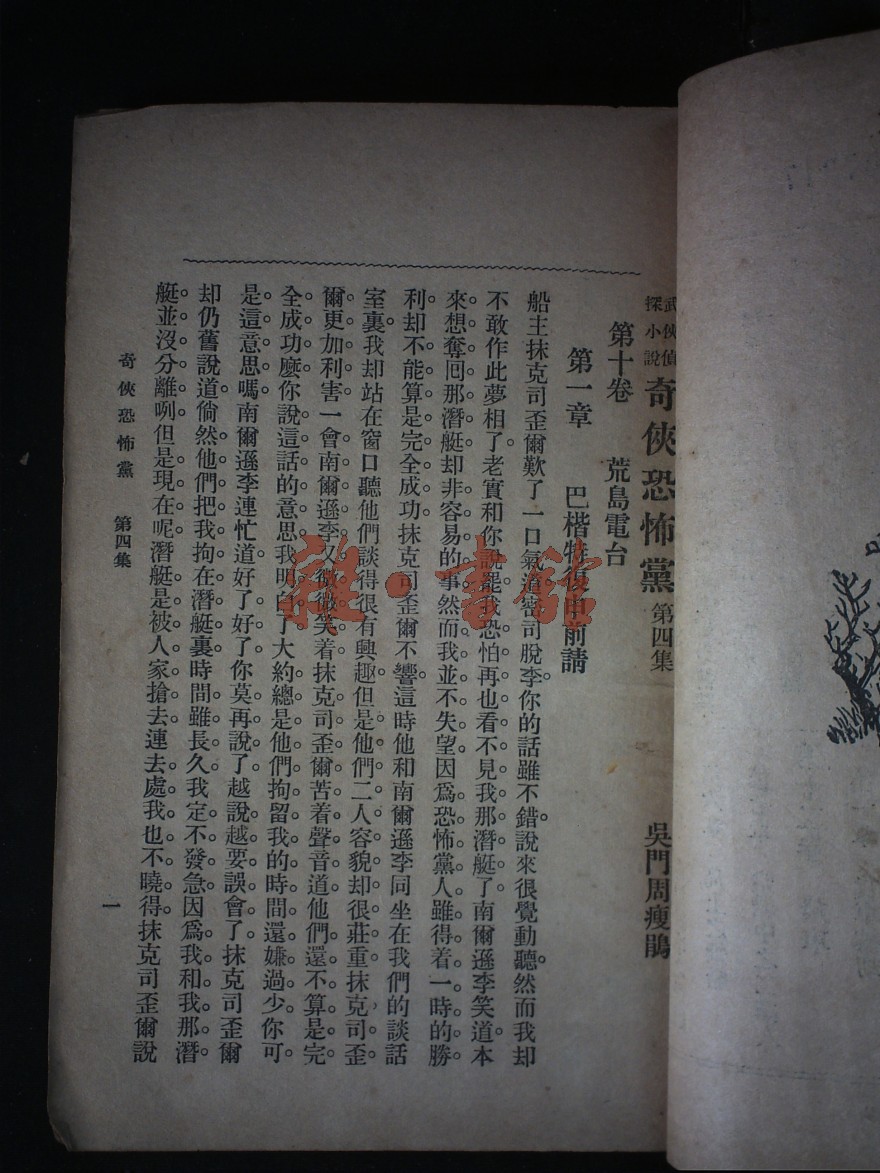 武俠偵探小說 奇俠恐怖黨 第四集 吳門周瘦鵑
第十卷 荒島電台
第一章 巴楷特復申前請
船主抹克司歪爾歎了一口氣道密司脫李你的話雖不錯。說來很覺動聽。然而我却
不敢作此夢相了。老實和你說罷我恐怕再也看不見我那潛艇了。南爾遜李笑道本
來想奪回那潛艇却非容易的事。然而我並不失望。因爲恐怖黨人雖得着一時的勝
利。却不能算是完全成功。抹克司歪爾不響。這時他和南爾遜李同坐在我們的談話
室裏。我却站在窗口聽他們談得很有興趣。但是他們二人容貌却很莊重。抹克司歪
爾更加利害。一會南爾遜李又微微笑着。抹克司歪爾苦着聲音道他們。還不算是完
全成功麼。你說這話的意思我明白了。大約總是他們拘留我的時間還嫌過少。你可
是這意思嗎。南爾遜李連忙道好了好了。你莫再說了。越說越要誤會了。抹克司歪爾
却仍舊說道倘然他們把我拘在潛艇裏。時間雖長久。我定不發急。因爲我和我那潛
艇。並沒分離咧。但是現在呢。潛艇是被人家搶去。連去處我也不曉得。抹克司歪爾說
奇俠恐怖黨 第四集
一
雜·書館